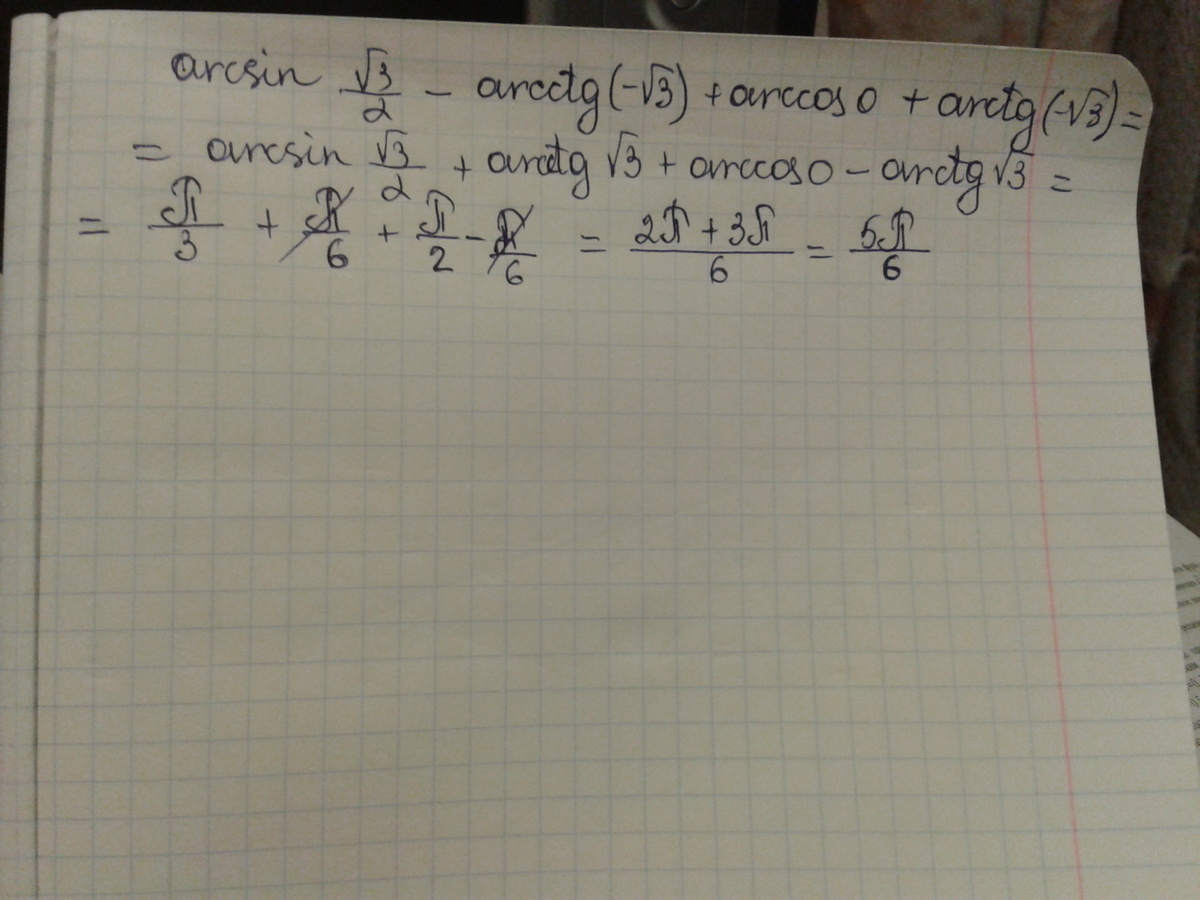 arcsin √3/2 − arcctg(−√3) + arccos 0 + arctg(−√3) =
= arcsin √3/2 + arcctg √3 + arccos 0 − arctg √3 =
= π/3 + π/6 + π/2 − π/6 = (2π + 3π)/6 = 5π/6